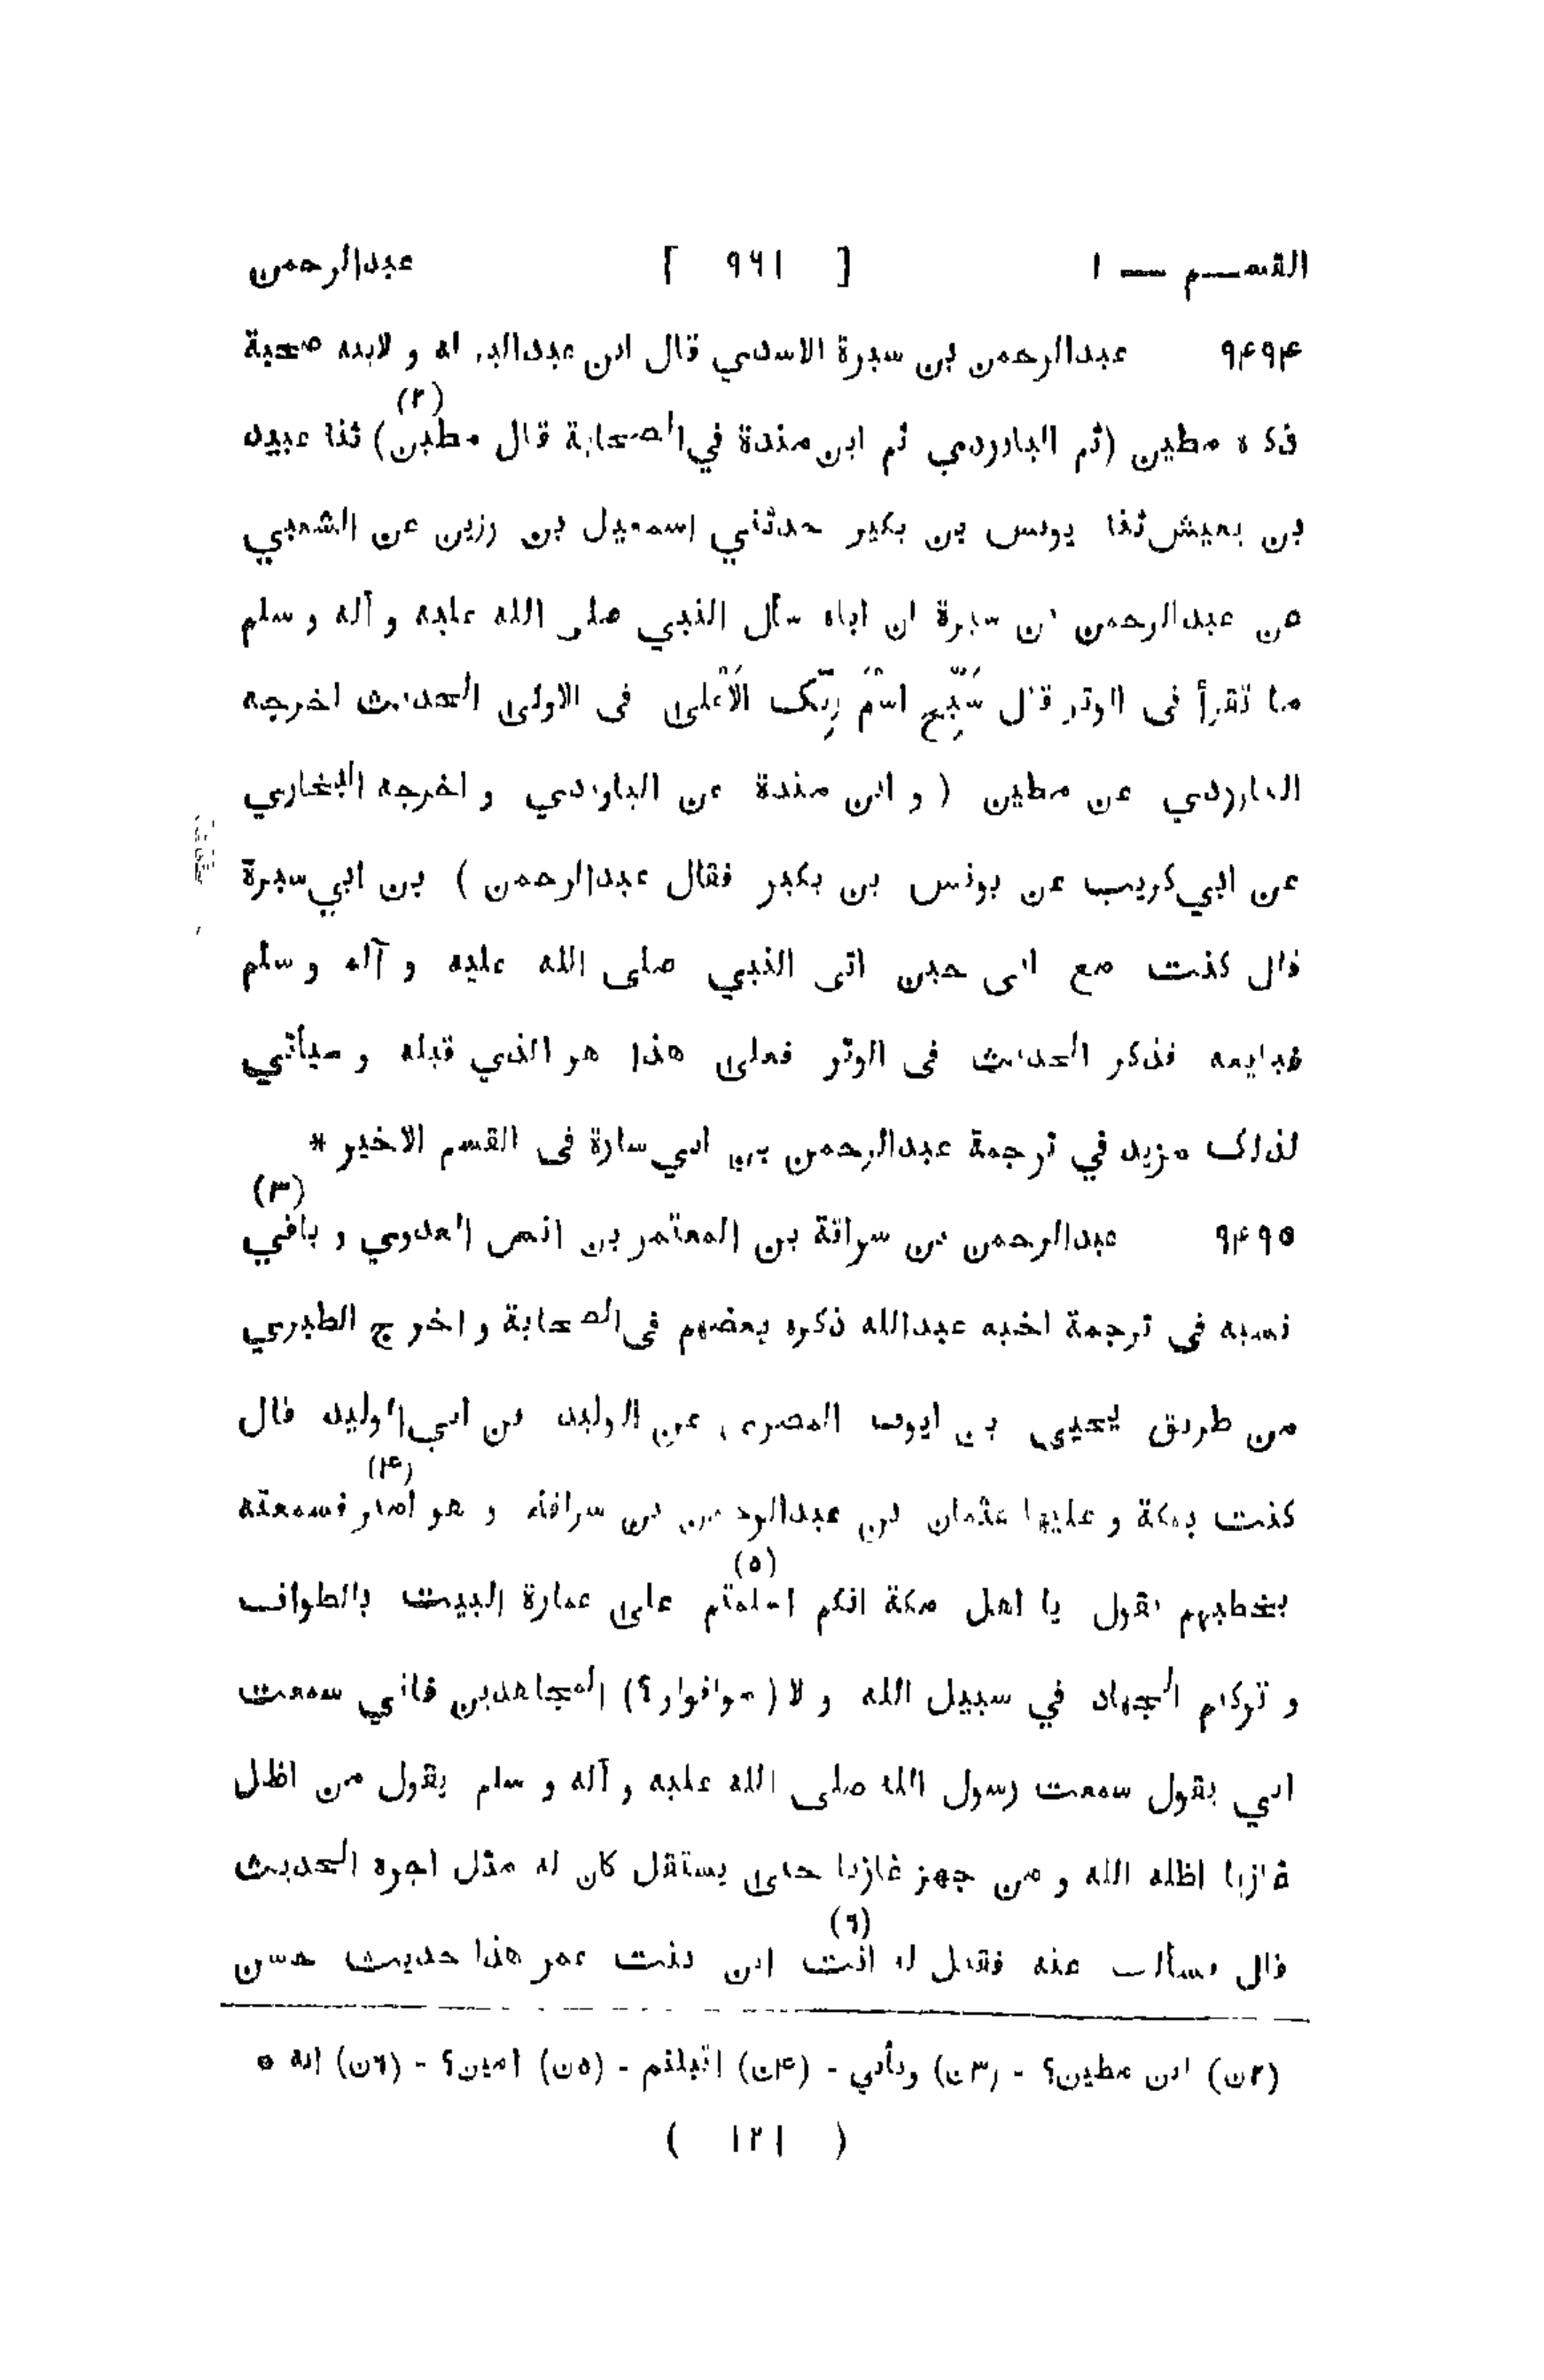 القسم — ١ [ ٩٦١ ] عبدالرحمن
٩۴٩۴ عبدالرحمن بن سبرة الاسدي قال ابن عبدالبر له و لابيه صحبة
(٢)
ذكره مطين (ثم الباوردي ثم ابن مندة في الصحابة قال مطين) ثنا عبيد
بن يعيش ثنا يونس بن بكير حدثني اسمعيل بن رزين عن الشعبي
عن عبدالرحمن بن سبرة ان اباه سأل النبي صلى الله عليه و آله و سلم
ما تقرأ فى الوتر قال سَبِّحِ اسْمَ رَبِّكَ الْاَعْلى فى الاولى الحديث اخرجه
الباوردي عن مطين ( و ابن مندة عن الباوردي و اخرجه البخاري
عن ابي كريب عن يونس بن بكير فقال عبدالرحمن ) بن ابي سبرة
قال كنت مع ابى حين اتى النبي صلى الله عليه و آله و سلم
فبايعه فذكر الحديث فى الوتر فعلى هذا هو الذي قبله و سيأتي
لذلك مزيد في ترجمة عبدالرحمن بن ابي سارة فى القسم الاخير *
(٣)
٩۴٩٥ عبدالرحمن بن سراقة بن المعتمر بن انس العدوي و باقي
نسبه فى ترجمة اخيه عبدالله ذكره بعضهم فى الصحابة و اخرج الطبري
من طريق يحيى بن ايوب المصرى عن الوليد بن ابي الوليد قال
(۴)
كنت بمكة و عليها عثمان بن عبدالرحمن بن سراقة و هو امير فسمعته
(٥)
يخطبهم يقول يا اهل مكة انكم اقبلتم على عمارة البيت بالطواف
و تركتم الجهاد في سبيل الله و لا ( ؟) المجاهدين فاني سمعت
ابي يقول سمعت رسول الله صلى الله عليه و آله و سلم يقول من اظل
غازيا اظله الله و من جهز غازيا حتى يستقل كان له مثل اجره الحديث
(٦)
قال فسألت عنه فقيل له انت ابن بنت عمر هذا حديث حسن
(٢ن) ابن مطين؟ - (٣ن) ويأتي - (۴ن) اقبلتم - (٥ن) امين؟ - (٦ن) انه *
( ١٢١ )